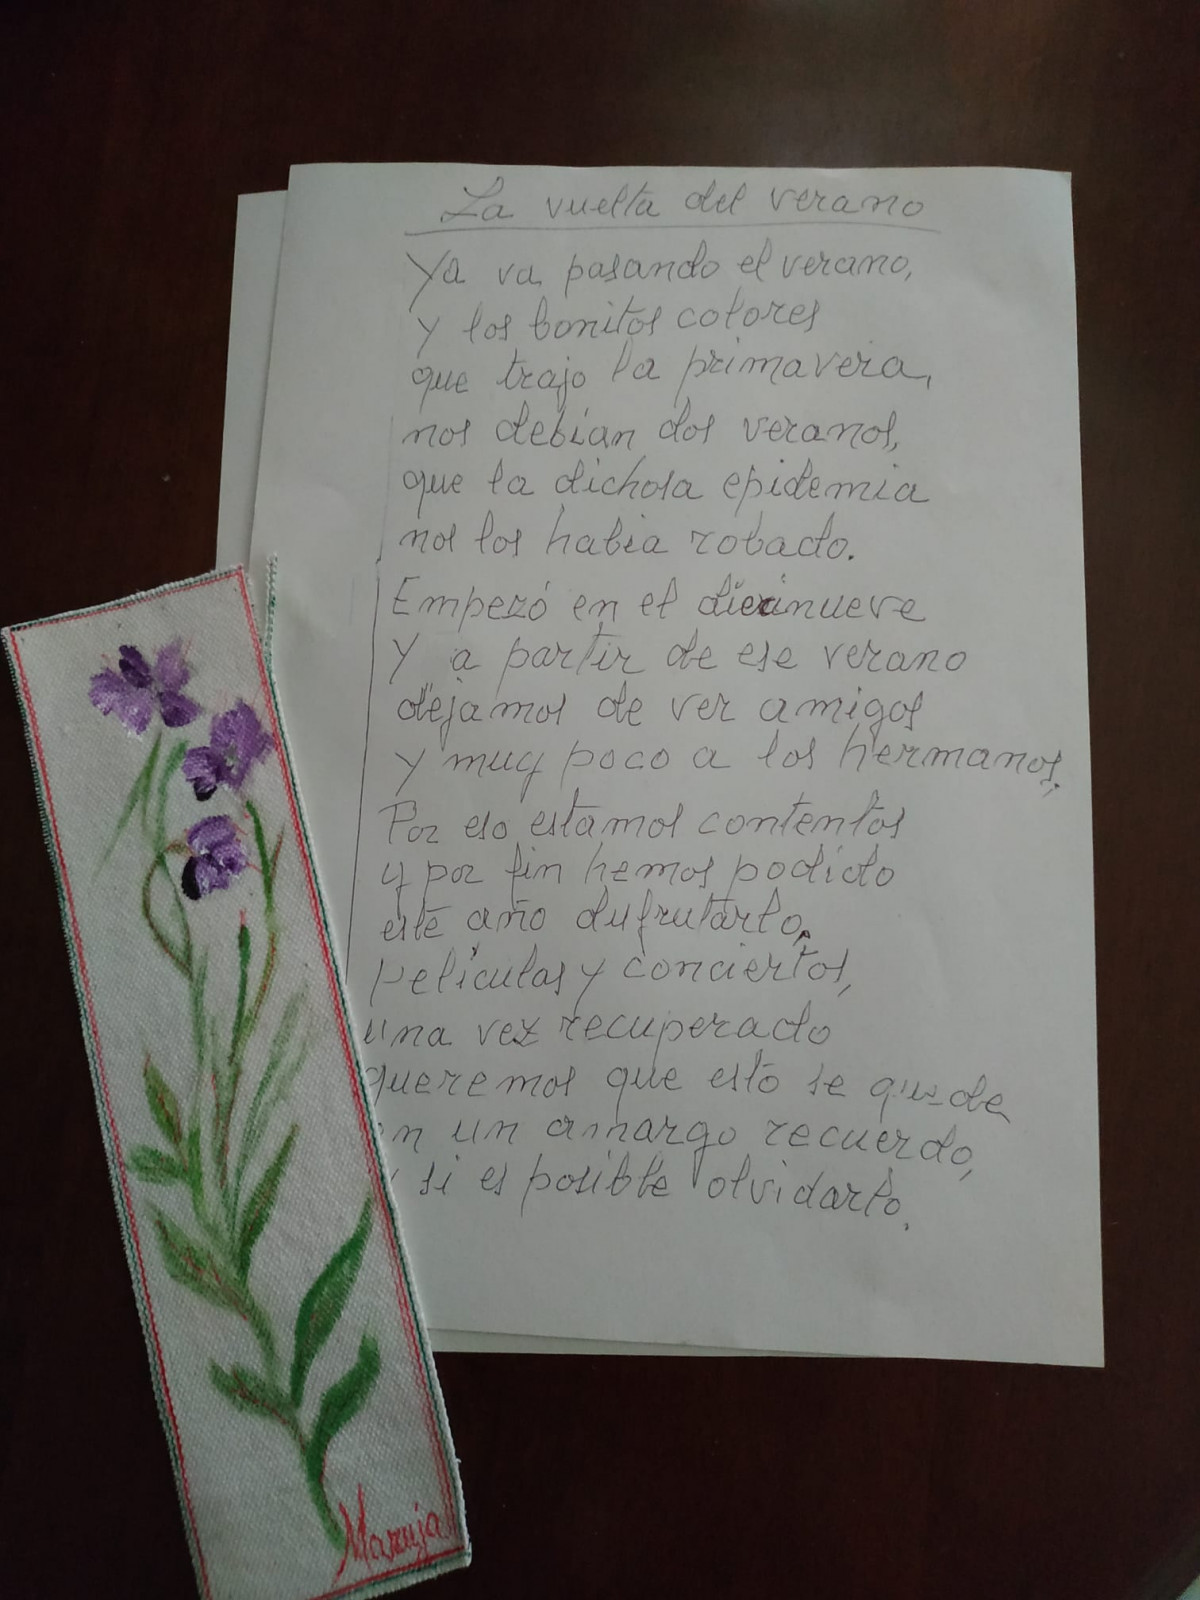 La vuelta del verano
Ya va pasando el verano,
y los bonitos colores
que trajo la primavera,
nos debian dos veranos,
que la dichosa epidemia
nos los habia robado.
Empezó en el diecinueve
Y a partir de ese verano
dejamos de ver amigos
y muy poco a los hermanos,
Por eso estamos contentos
y por fin hemos podido
este año disfrutarlo.
películas y conciertos,
una vez recuperado
queremos que esto se quede
en un amargo recuerdo,
y si es posible olvidarlo.
Maruja